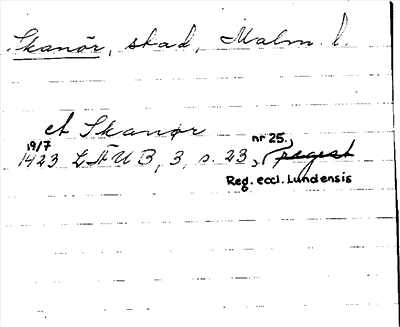 Skanör, stad, Malm. l.
et Skanør
19/7
1423 LÄUB, 3, s. 23, nr 25., regest
Reg. eccl. Lundensis